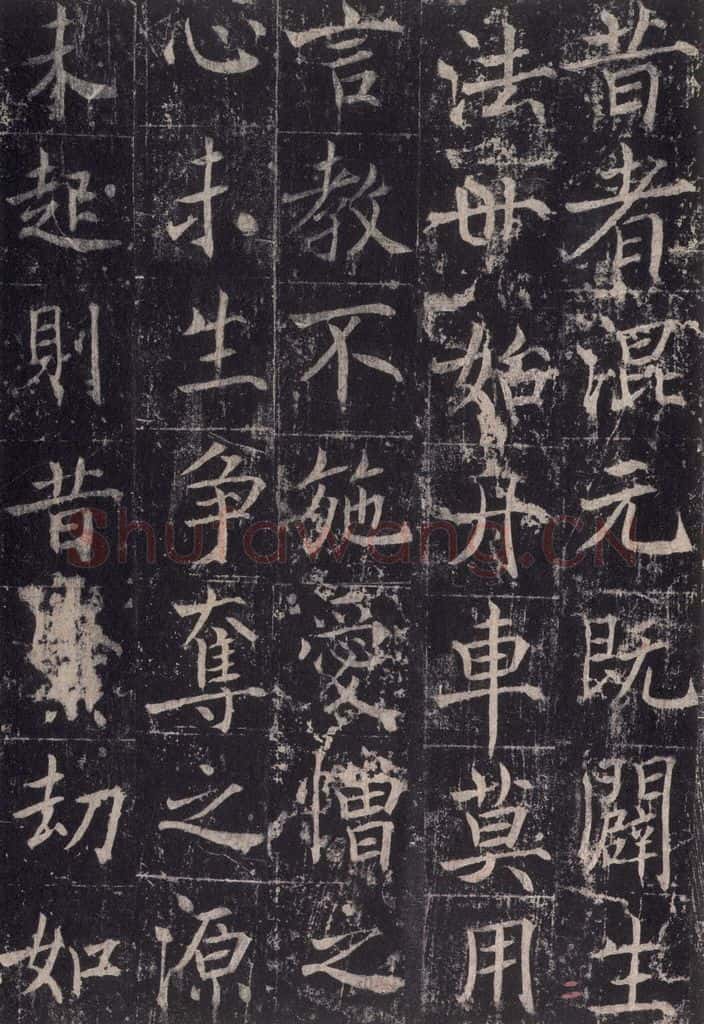 昔者混元既闢生
法母始舟車莫用
言教不施愛憎之
心未生爭奪之源
未起則昔劫如
Shufawang.CN